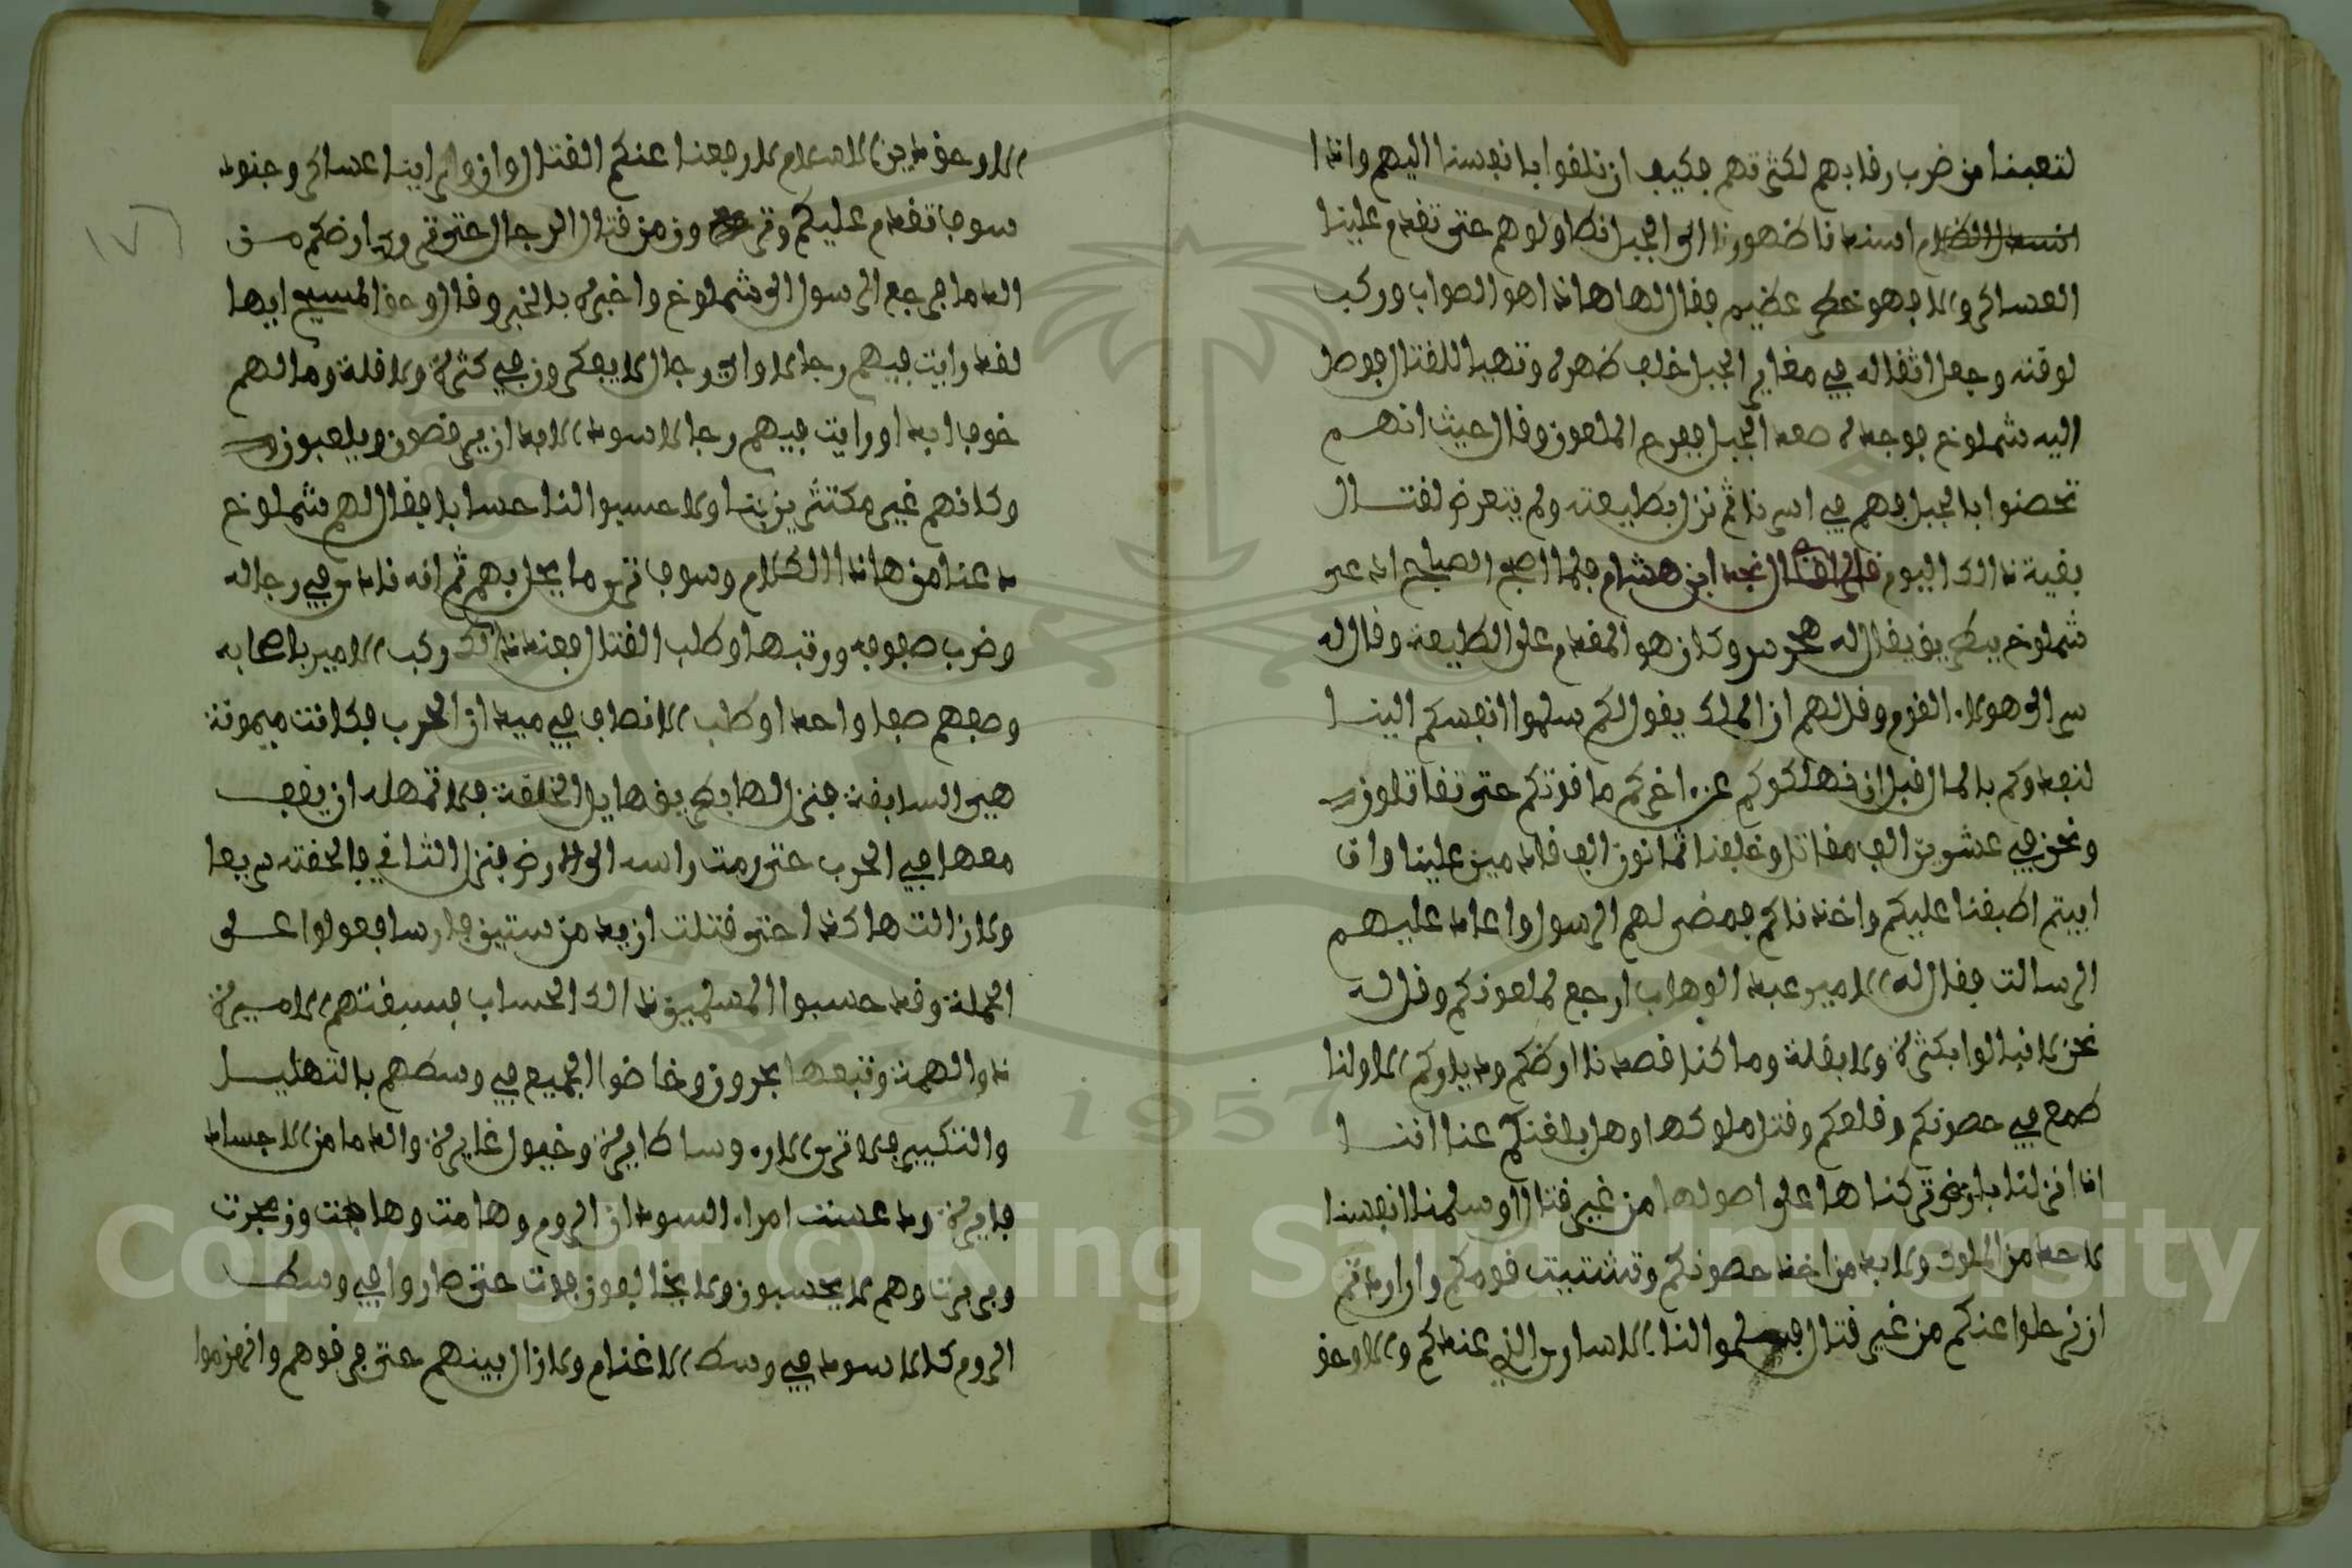 لتعبنا من ضرب رقابهم لكثرتهم فكيف ان نلقوا بانفسنا اليهم وانما
اسندنا ظهورنا الى الجبل نطاولوهم حتى تقدم علينا
العساكر والا فهو خطر عظيم فقال لها هاذا هو الصواب وركب
لوقته وجعل اثقاله في مغاير الجبل خلف ظهره وتهيا للقتال فوصل
اليه شملوخ فوجده صعد الجبل ففرح الملعون وقال حيث انهم
تحصنوا بالجبل فهم في اسرنا ثم نزل بطليعته ولم يتعرض لقتال
بقية ذالك اليوم قال نجد ابن هشام فلما اصبح الصباح ادعى
شملوخ ببطريق يقال له وكان هو المقدم على الطليعة وقال له
سر الى هولاء القوم وقل لهم ان الملك يقول لكم سلموا انفسكم الينا
لنفدوكم بالمال قبل ان نهلكوكم عن اخركم ما قوتكم حتى تقاتلون
ونحن في عشرين الف مقاتل وخلفنا ثمانون الف قادمين علينا وان
ابيتم اطبقنا عليكم واخذناكم فمضى لهم الرسول واعاد عليهم
الرسالت فقال له الامير عبد الوهاب ارجع لملعونكم وقل له
نحن لا نبالوا بكثرة ولا بقلة وما كنا قصدنا ارضكم ودياركم الا ولنا
طمع في حصونكم وقلعكم وقتل ملوكها وهل بلغكم عنا اننا
اذا نزلنا بارض تركناها على اصولها من غير قتال او سلمنا انفسنا
لاحد من الملوك ولا بد من اخذ حصونكم وتشتيت قومكم وان اردتم
ان نرحلوا عنكم من غير قتال فسلموا لنا الاسارى الذي عندكم والا وحق
الا وحق دين الاسلام لا رجعنا عنكم القتال وان ورائنا عساكر وجنود
سوف تقدم عليكم وترون من قتال الرجال حتى تروى ارضكم من
الدما فرجع الرسول الى شملوخ واخبره بالخبر وقال وحق المسيح ايها
لقد رايت فيهم رجالا واي رجال لا يفكرون في كثرة ولا قلة وما لهم
خوف ابدا ورايت فيهم رجالا سود الابدان يرقصون ويلعبون
وكانهم غير مكتثرين بنا ولا حسبوا لنا حسابا فقال لهم شملوخ
دعنا من هاذا الكلام وسوف ترى ما يحل بهم ثم انه نادى في رجاله
وضرب صفوفه ورتبها وطلب القتال فعند ذالك ركب الامير باصحابه
وصفهم صفا واحدا وطلب الانصاف في ميدان الحرب فكانت ميمونة
هي السابقة فنزل لها بطريق هايل الخلقة فلا تمهله ان يقف
معها في الحرب حتى رمت راسه الى الارض فنزل الثاني فالحقته سريعا
ولا زالت هاكذا حتى قتلت ازيد من ستين فارسا فعولوا على
الحملة وقد حسبوا المسلمين ذالك الحساب فسبقتهم الاميرة
ذو الهمة وتبعها بحرون وخاضوا الجميع في وسطهم بالتهليل
والتكبير فلا ترى الا روسا طايرة وخيول غايرة والدما من الاجساد
فايرة ودعست امراء السودان الروم وهامت وهاجت وزمجرت
وبربرت وهم لا يحسبون ولا يخافون فوت حتى صاروا في وسط
الروم كالاسود في وسط الاغنام ولا زال بينهم حتى فرقوهم وانهزموا